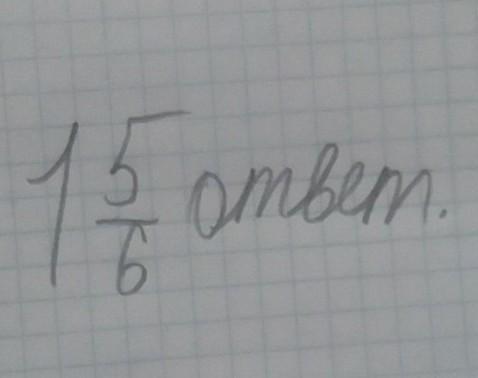 1 5/6 ответ.